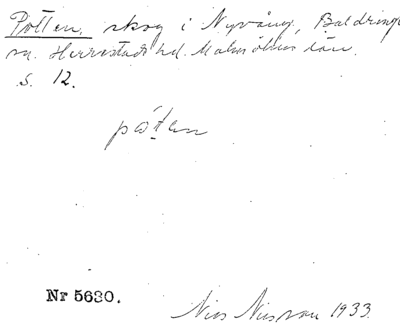 Potten, skog i Nyvång, Baldringe
sn. Herrestads hd. Malmöhus län.
s. 12.
påtan
Nr 5630.
Nils Nilsson 1933.